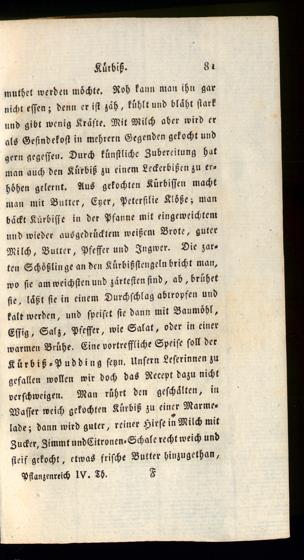 Kürbiß. 81
muthet werden möchte. Roh kann man ihn gar
nicht essen; denn er ist zäh, kühlt und bläht stark
und gibt wenig Kräfte. Mit Milch aber wird er
als Gesindekost in mehrern Gegenden gekocht und
gern gegessen. Durch künstliche Zubereitung hat
man auch den Kürbiß zu einem Leckerbißen zu er-
höhen gelernt. Aus gekochten Kürbissen macht
man mit Butter, Eyer, Petersilie Klöße; man
bäckt Kürbisse in der Pfanne mit eingeweichtem
und wieder ausgedrücktem weißem Brote, guter
Milch, Butter, Pfeffer und Ingwer. Die zar-
ten Schößlinge an den Kürbißstengeln bricht man,
wo sie am weichsten und zärtesten sind, ab, brühet
sie, läßt sie in einem Durchschlag abtropfen und
kalt werden, und speiset sie dann mit Baumöhl,
Essig, Salz, Pfeffer, wie Salat, oder in einer
warmen Brühe. Eine vortreffliche Speise soll der
Kürbiß-Pudding seyn. Unsern Leserinnen zu
gefallen wollen wir doch das Recept dazu nicht
verschweigen. Man rührt den geschälten, in
Wasser weich gekochten Kürbiß zu einer Marme-
lade; dann wird guter, reiner Hirse in Milch mit
Zucker, Zimmt und Citronen-Schale recht weich und
steif gekocht, etwas frische Butter hinzugethan,
Pflanzenreich IV. Th. F